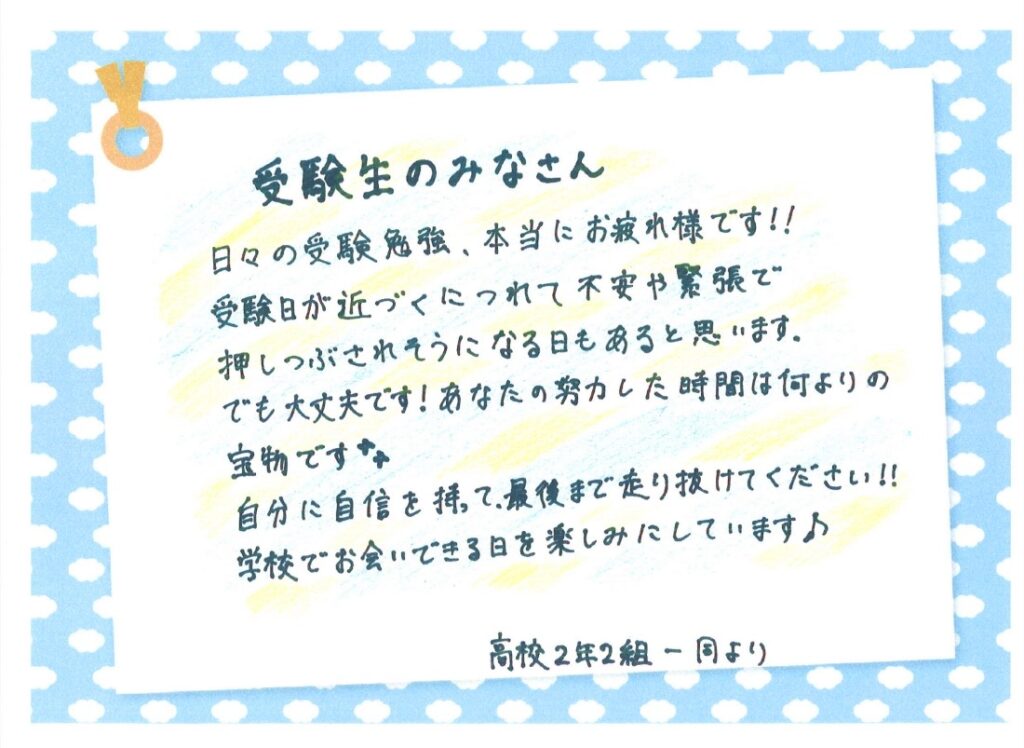 受験生のみなさん
日々の受験勉強、本当にお疲れ様です!!
受験日が近づくにつれて不安や緊張で
押しつぶされそうになる日もあると思います。
でも大丈夫です!あなたの努力した時間は何よりの
宝物です
自分に自信を持って、最後まで走り抜けてください!!
学校でお会いできる日を楽しみにしています♪
高校2年2組一同より